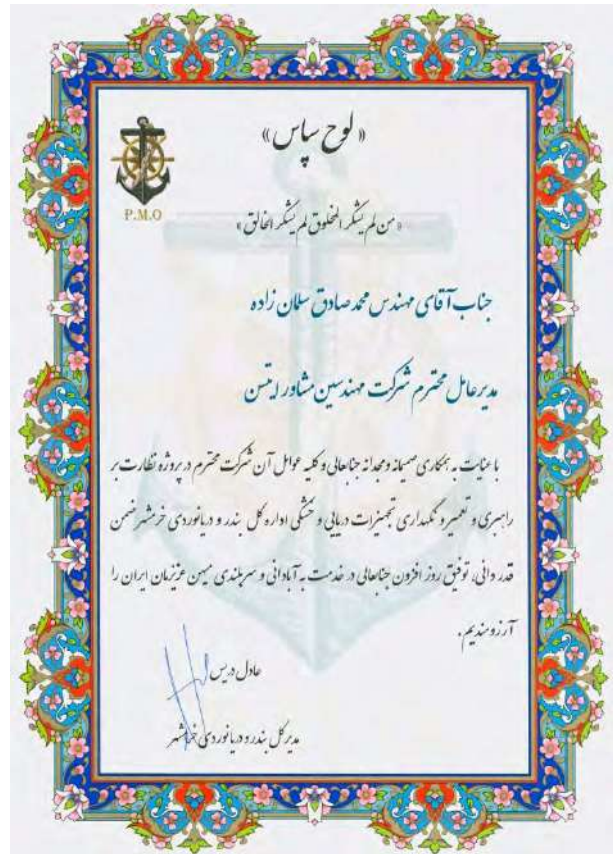 «لوح سپاس»
P.M.O
«من لم یشکر المخلوق لم یشکر الخالق»
جناب آقای مهندس محمد صادق سلمان زاده
مدیرعامل محترم شرکت مهندسین مشاور
با عنایت به همکاری صمیمانه و مجدانه جنابعالی و کلیه عوامل آن شرکت محترم در پروژه نظارت بر
راهبری و تعمیر و نگهداری تجهیزات دریایی و خشکی اداره کل بندر و دریانوردی خرمشهر ضمن
قدردانی، توفیق روز افزون جنابعالی در خدمت به آبادانی و سربلندی میهن عزیزمان ایران را
آرزومندیم.
عادل دریس
مدیرکل بندر و دریانوردی خرمشهر